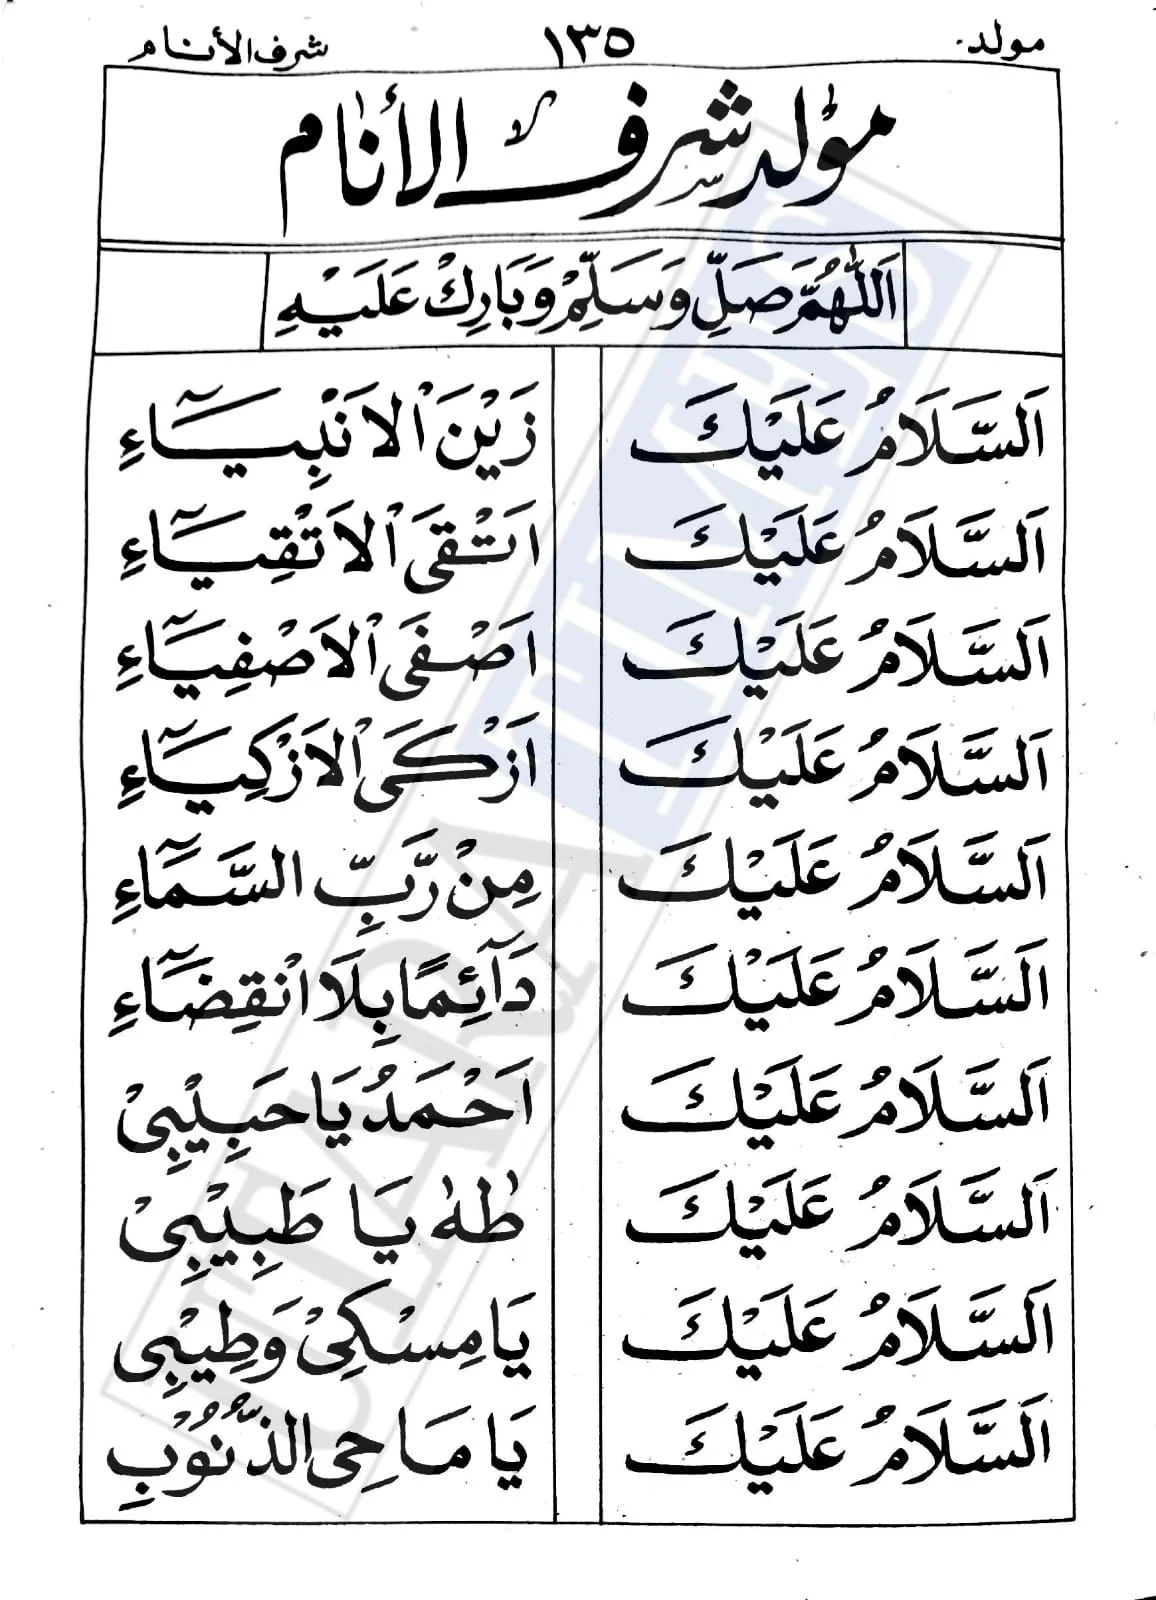 مولد. ١٣٥ شرف الأنام
مَوْلِد شرف الأنام
اَللّٰهُمَّ صَلِّ وَسَلِّمْ وَبَارِكْ عَلَيْهِ
اَلسَّلَامُ عَلَيْكَ زَيْنَ الْاَنْبِيَآءِ
اَلسَّلَامُ عَلَيْكَ اَتْقَى الْاَتْقِيَآءِ
اَلسَّلَامُ عَلَيْكَ اَصْفَى الْاَصْفِيَآءِ
اَلسَّلَامُ عَلَيْكَ اَزْكَى الْاَزْكِيَآءِ
اَلسَّلَامُ عَلَيْكَ مِنْ رَّبِّ السَّمَآءِ
اَلسَّلَامُ عَلَيْكَ دَآئِمًا بِلَا انْقِضَآءِ
اَلسَّلَامُ عَلَيْكَ اَحْمَدُ يَا حَبِيْبِيْ
اَلسَّلَامُ عَلَيْكَ طٰهٰ يَا طَبِيْبِيْ
اَلسَّلَامُ عَلَيْكَ يَا مِسْكِيْ وَطِيْبِيْ
اَلسَّلَامُ عَلَيْكَ يَا مَاحِى الذُّنُوْبِ